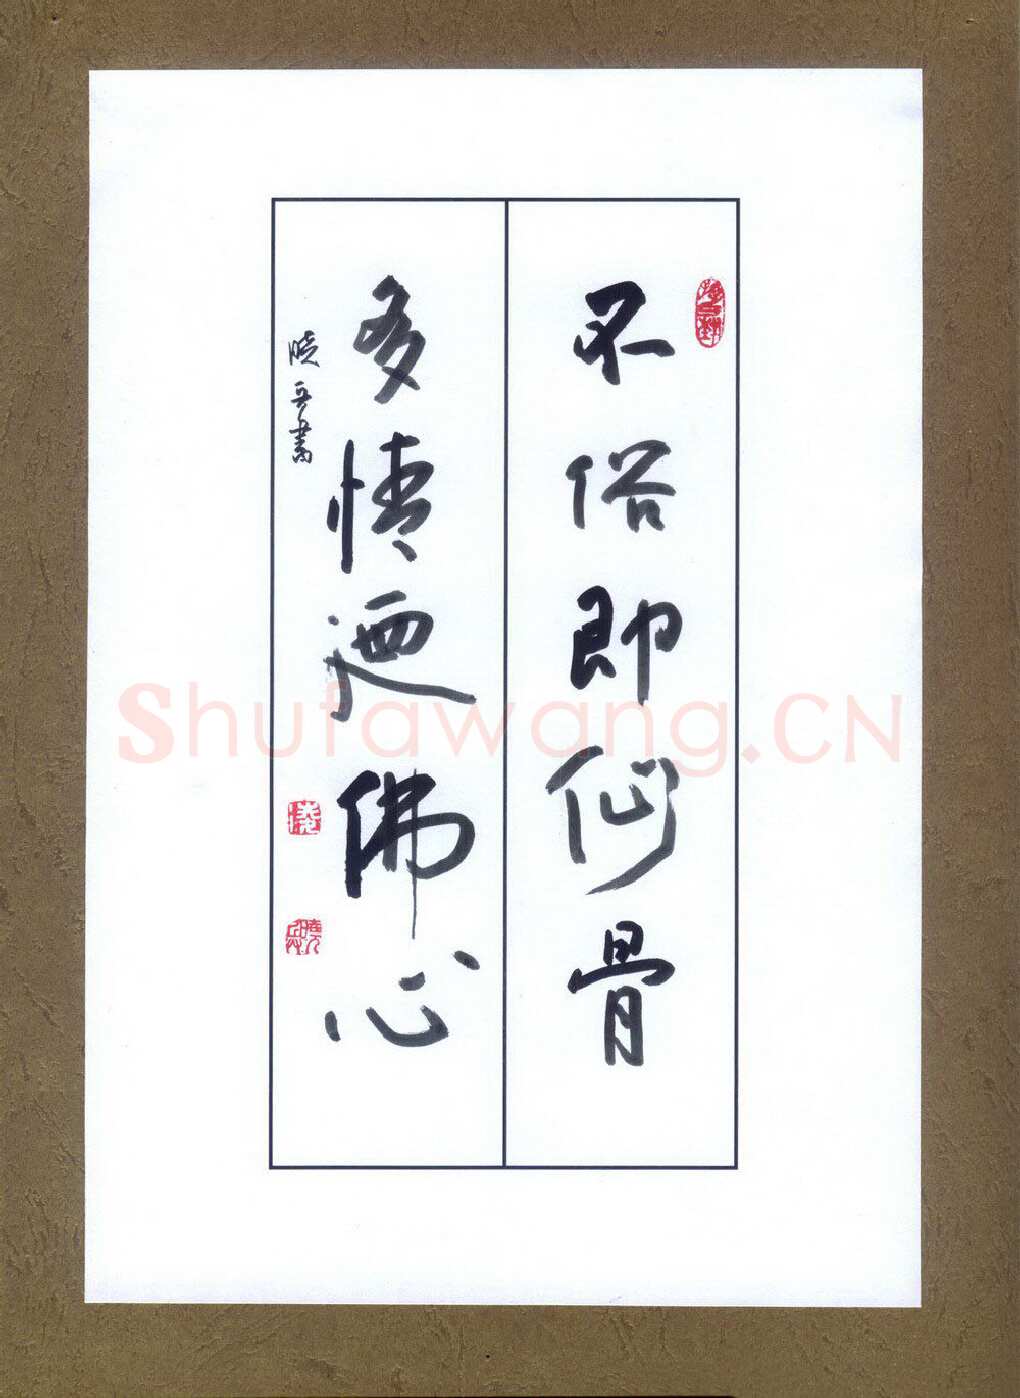 不俗即仙骨
多情迺佛心
晓兵書
Shufawang.CN